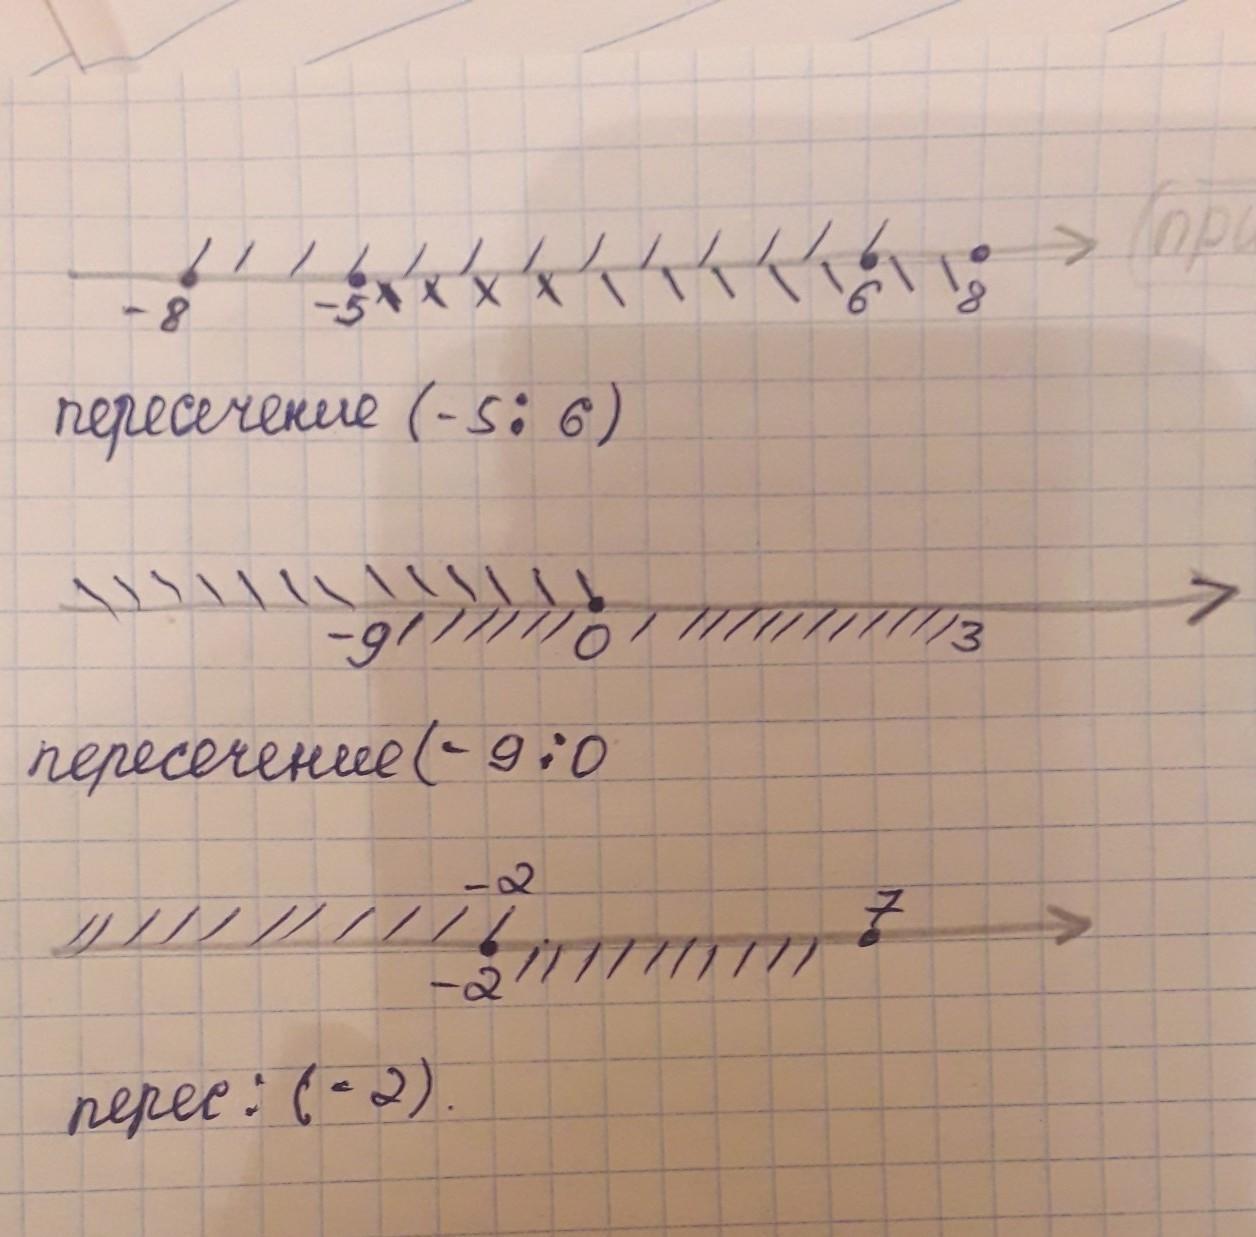 -8 -5 6 8
пересечение (-5; 6)
-9 0 3
пересечение (-9;0
-2 7
-2
перес: (-2).